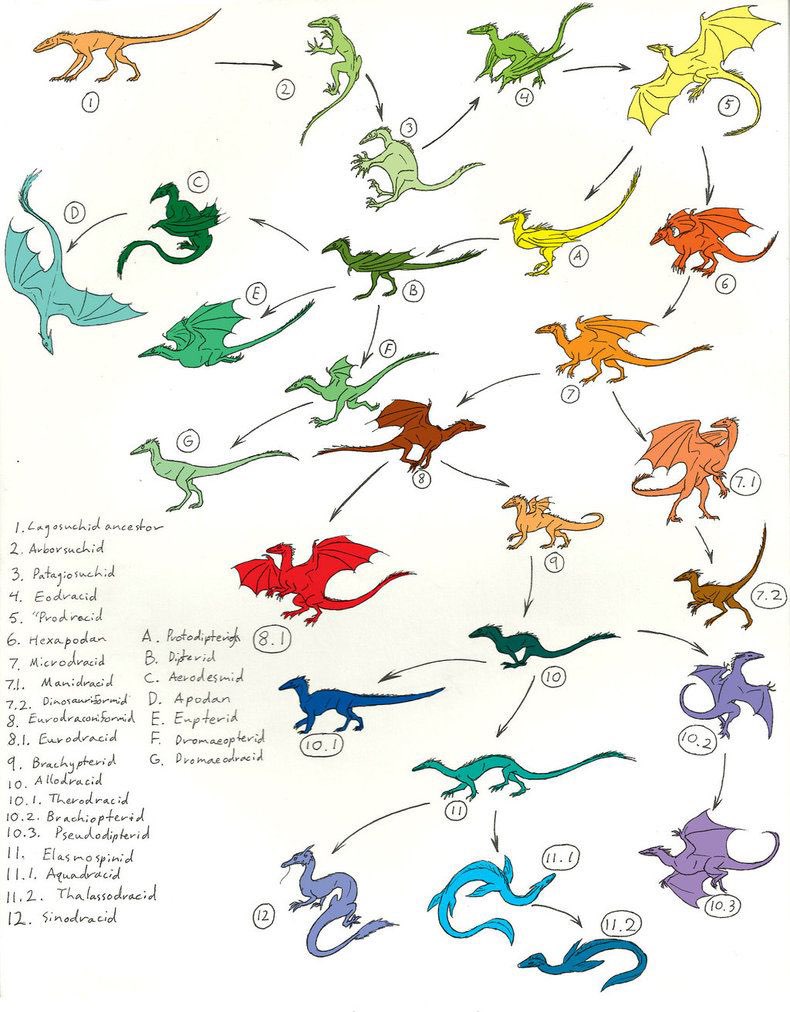 1
2
3
4
5
C
D
A
6
B
E
F
7
G
8
7.1
9
7.2
8.1
10
10.1
10.2
11
11.1
10.3
12
11.2
1. Lagosuchid ancestor
2. Arborsuchid
3. Patagiosuchid
4. Eodracid
5. "Prodracid
6. Hexapodan
7. Microdracid
7.1. Manidracid
7.2. Dinosauriformid
8. Eurodraconiformid
8.1. Eurodracid
9. Brachypterid
10. Allodracid
10.1. Therodracid
10.2. Brachiopterid
10.3. Pseudodipterid
11. Elasmospinid
11.1. Aquadracid
11.2. Thalassodracid
12. Sinodracid
A. Protodipterid
B. Dipterid
C. Aerodesmid
D. Apodan
E. Eupterid
F. Dromaeopterid
G. Dromaeodracid